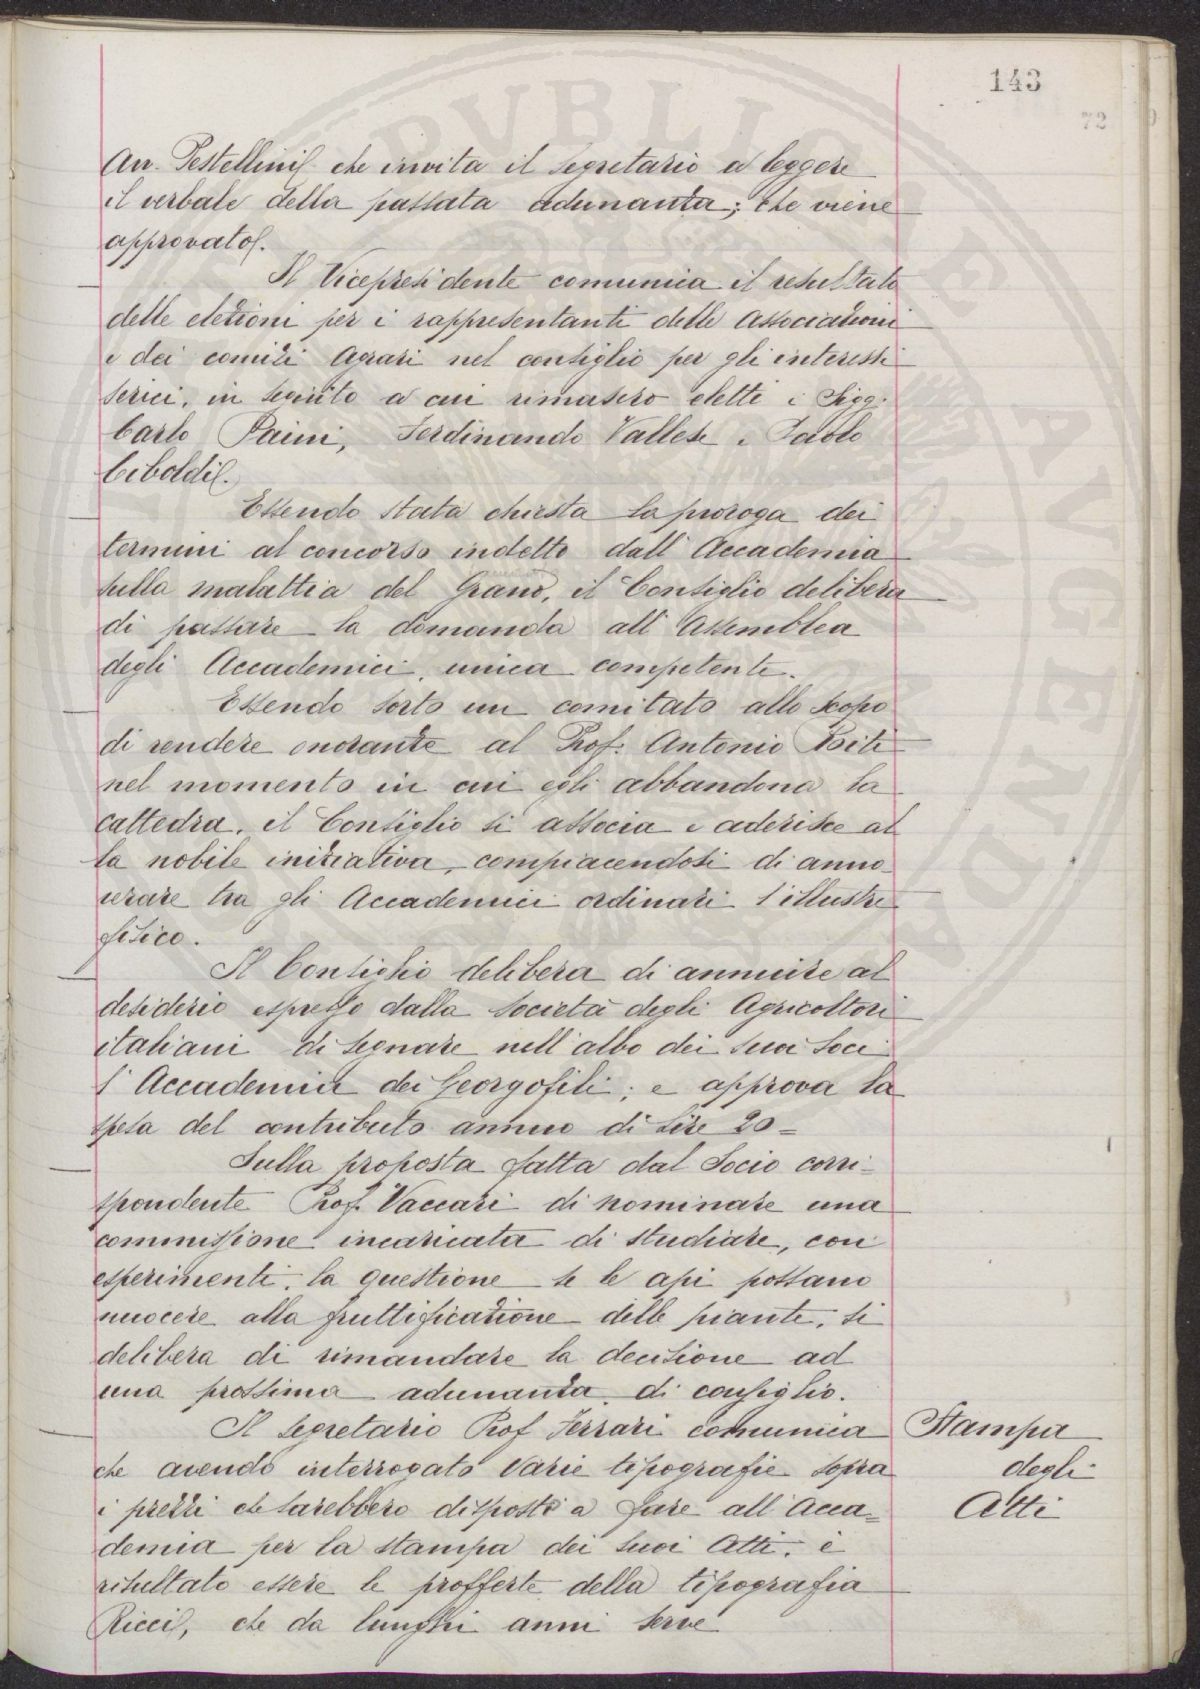 143
72
Avv. Pestellini che invita il Segretario a leggere
il verbale della passata adunanza; che viene
approvato.
Il Vicepresidente comunica il resultato
delle elezioni per i rappresentanti delle Associazioni
e dei comizi Agrari nel consiglio per gli interessi
serici, in seguito a cui rimasero eletti i Sigg.
Carlo Paini, Ferdinando Vallese e Paolo
Ciboldi.
Essendo stata chiesta la proroga dei
termini al concorso indetto dall'Accademia
sulla malattia del Grano, il Consiglio delibera
di passare la domanda all'Assemblea
degli Accademici, unica competente.
Essendo sorto un comitato allo scopo
di rendere onoranze al Prof. Antonio Roiti
nel momento in cui egli abbandona la
cattedra, il Consiglio si associa e aderisce al
la nobile iniziativa, compiacendosi di anno-
verare tra gli Accademici ordinari l'illustre
fisico.
Il Consiglio delibera di annuire al
desiderio espresso dalla Società degli Agricoltori
italiani di segnare nell'albo dei suoi Soci
l'Accademia dei Georgofili; e approva la
spesa del contributo annuo di Lire 20=
Sulla proposta fatta dal Socio corri=
spondente Prof. Vaccari di nominare una
commissione incaricata di studiare, con
esperimenti, la questione se le api possano
nuocere alla fruttificazione delle piante, si
delibera di rimandare la decisione ad
una prossima adunanza di consiglio.
Il Segretario Prof Ferrari comunica
che avendo interrogato varie tipografie sopra
i prezzi che sarebbero disposti a fare all'Acca=
demia per la stampa dei suoi Atti, è
risultato essere le profferte della tipografia
Ricci, che da lunghi anni serve
Stampa
degli
Atti